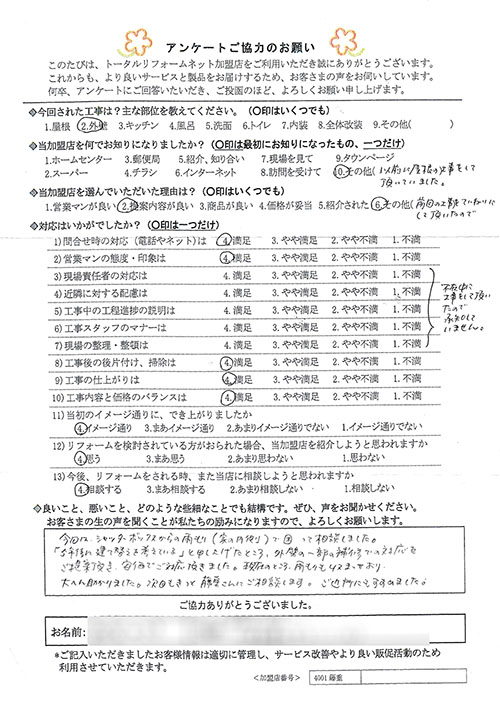 アンケートご協力のお願い
このたびは、トータルリフォームネット加盟店をご利用いただき誠にありがとうございます。
これからも、より良いサービスと製品をお届けするため、お客さまの声をお伺いしています。
何卒、アンケートにご回答いただき、ご投函のほど、よろしくお願い申し上げます。
◇今回された工事は？主な部位を教えてください。（〇印はいくつでも）
1.屋根 2.外壁 3.キッチン 4.風呂 5.洗面 6.トイレ 7.内装 8.全体改装 9.その他( )
◇当加盟店を何でお知りになりましたか？（〇印は最初にお知りになったもの、一つだけ）
1.ホームセンター 3.郵便局 5.紹介、知り合い 7.現場を見て 9.タウンページ
2.スーパー 4.チラシ 6.インターネット 8.訪問を受けて 10.その他(以前に屋根の工事をして頂いていました。
◇当加盟店を選んでいただいた理由は？（〇印はいくつでも）
1.営業マンが良い 2.提案内容が良い 3.商品が良い 4.価格が妥当 5.紹介された 6.その他(前回の工事も
して頂いたので
◇対応はいかがでしたか？（〇印は一つだけ）
1)問合せ時の対応（電話やネット)は 4.満足 3.やや満足 2.やや不満 1.不満
2)営業マンの態度・印象は 4.満足 3.やや満足 2.やや不満 1.不満
3)現場責任者の対応は 4.満足 3.やや満足 2.やや不満 1.不満
4)近隣に対する配慮は 4.満足 3.やや満足 2.やや不満 1.不満
5)工事中の工程進捗の説明は 4.満足 3.やや満足 2.やや不満 1.不満
6)工事スタッフのマナーは 4.満足 3.やや満足 2.やや不満 1.不満
7)現場の整理・整頓は 4.満足 3.やや満足 2.やや不満 1.不満
不在中に
工事をして頂い
たので
いません。
8)工事後の後片付け、掃除は 4.満足 3.やや満足 2.やや不満 1.不満
9)工事の仕上がりは 4.満足 3.やや満足 2.やや不満 1.不満
10)工事内容と価格のバランスは 4.満足 3.やや満足 2.やや不満 1.不満
11)当初のイメージ通りに、でき上がりましたか
4.イメージ通り 3.まあイメージ通り 2.あまりイメージ通りでない 1.イメージ通りでない
12)リフォームを検討されている方がおられた場合、当加盟店を紹介しようと思われますか
4.思う 3.まあ思う 2.あまり思わない 1.思わない
13)今後、リフォームをされる時、また当店に相談しようと思われますか
4.相談する 3.まあ相談する 2.あまり相談しない 1.相談しない
◇良いこと、悪いこと、どのような些細なことでも結構です。ぜひ、声をお聞かせください。
お客さまの生の声を聞くことが私たちの励みになりますので、よろしくお願いします。
今回は、シャッターボックスからの雨もり(窓の内側)で困って相談しました。
「5年後に建て替えを考えている」と申し上げたところ、外壁の一部の補修での対応を
ご提案頂き、安価でご対応頂きました。現在のところ、雨もりも止まっており
大へん助かりました。次回もきっと藤重さんにご相談します。ご近所にもすすめました。
ご協力ありがとうございました。
お名前:
*ご記入いただきましたお客様情報は適切に管理し、サービス改善やより良い販促活動のため
利用させていただきます。
＜加盟店番号＞ 4001藤重